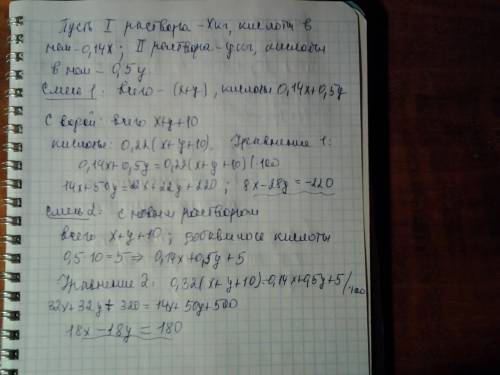 Пусть I раствора - xкг, кислоты в
нем - 0,14x; II раствора - yкг, кислоты
в нем - 0,5y.
Смесь 1: всего - (x+y), кислоты 0,14x+0,5y
С водой: всего x+y+10
кислоты: 0,22(x+y+10). Уравнение 1:
0,14x+0,5y=0,22(x+y+10) |·100
14x+50y=22x+22y+220; 8x-28y=-220
Смесь 2: с новым раствором
всего x+y+10; добавилось кислоты
0,5·10=5 ⇒ 0,14x+0,5y+5
Уравнение 2: 0,32(x+y+10)=0,14x+0,5y+5/·100
32x+32y+320=14x+50y+500
18x-18y=180